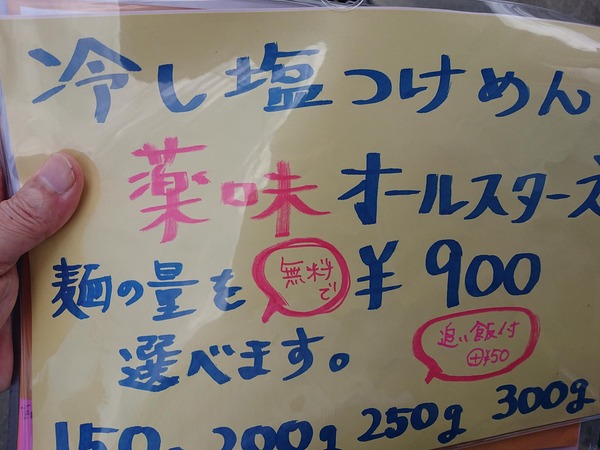 冷し塩つけめん
薬味オールスターズ
麺の量を 無料で ¥900
選べます。 追い飯付 ⊕¥50
150g 200g 250g 300g